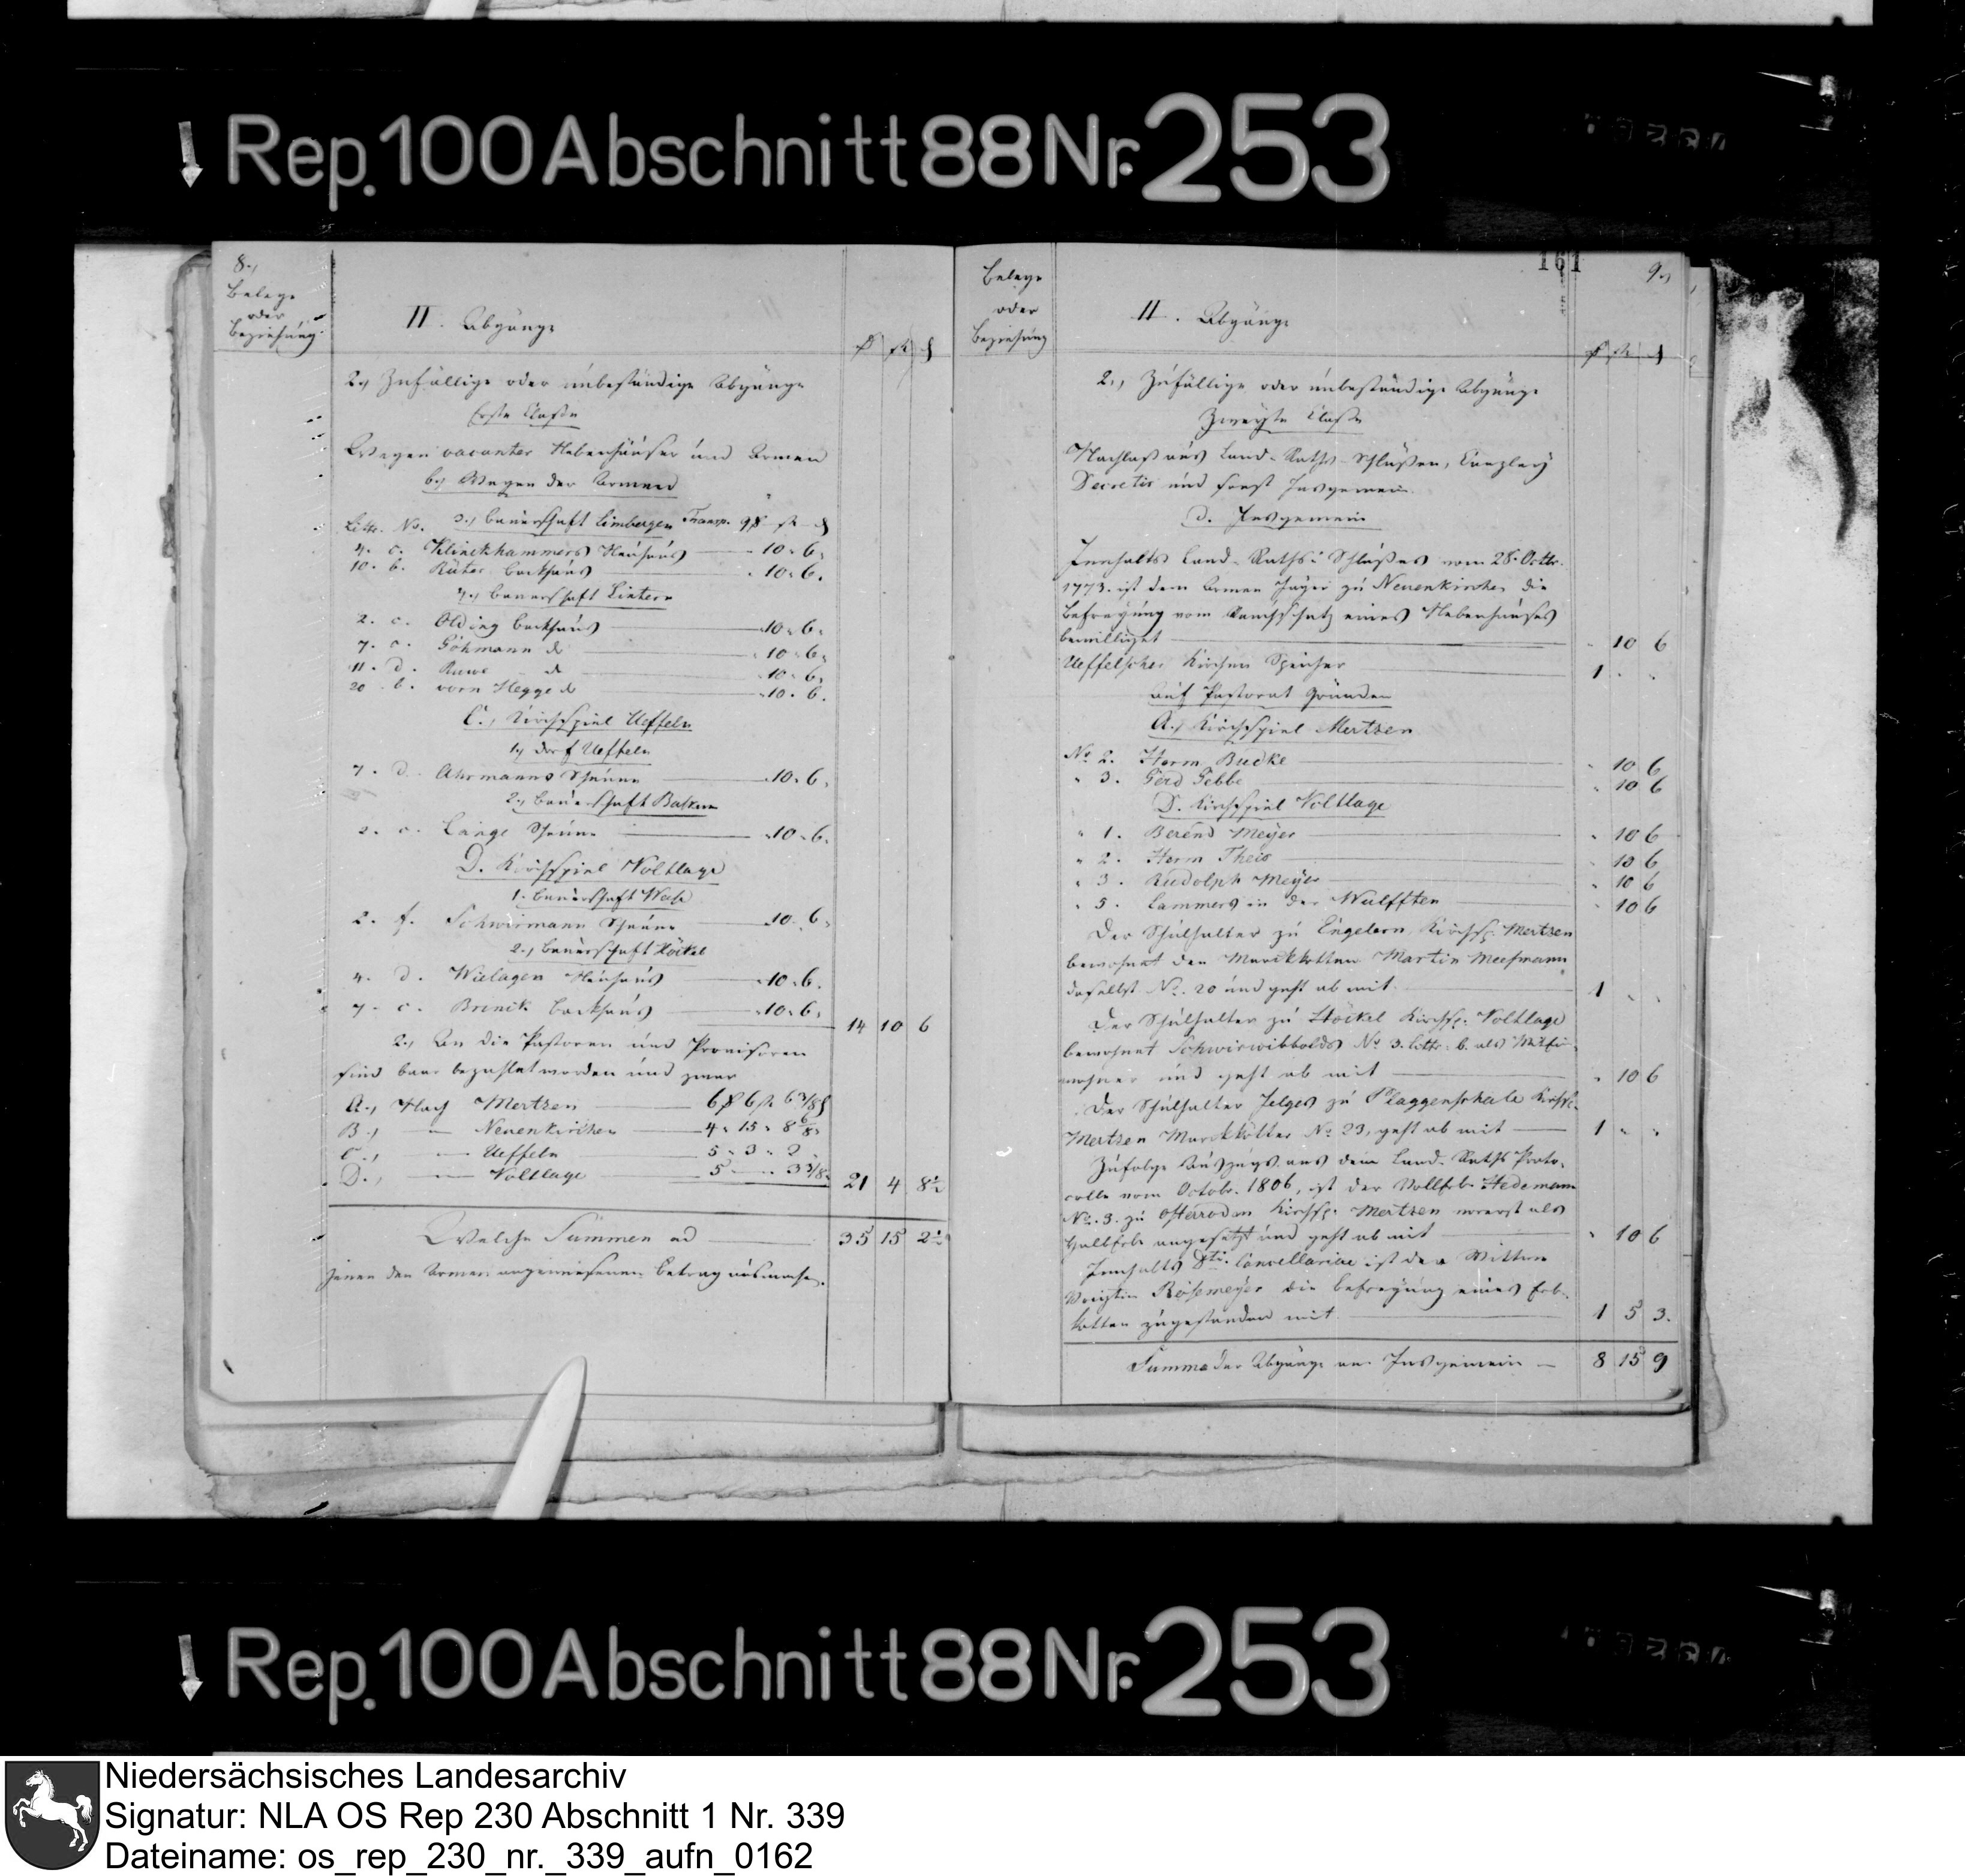 Rep. 100 Abschnitt 88 Nr. 253
8.,
Belege
oder
Beziehung.
II. Abgänge
2., Zufällige oder unbeständige Abgänge
Erste Classe
Wegen vacanter Nebenhäuser und Armen
b., Wegen der Armen
Littr. No. 3., Bauerschaft Limbergen Transp. 9
4. c. Klinckhammers Heuhaus 10. 6.
10. b. Rüter Backhaus 10. 6.
4., Bauerschaft Lintern
2. c. Olding Backhaus 10. 6.
7. c. Göhmann do 10. 6.
11. d. Ruwe do 10. 6.
20 b. vorn Hegge do 10. 6.
C., Kirchspiel Ueffeln
1., Dorf Ueffeln
7. d. Ahrmanns Scheune 10. 6.
2., Bauerschaft Balkum
2. c. Lange Scheune 10. 6.
D. Kirchspiel Voltlage
1. Bauerschaft Weese
2. f. Schwirmann Scheune 10. 6.
2., Bauerschaft Höckel
4. d. Wielagen Heuhaus 10. 6.
7. c. Brinck Backhaus 10. 6.
14 10 6
2., An die Pastoren und Provisoren
sind baar bezahlet worden und zwar
A., Nach Mertzen 6 6 6 3/8
B., — Neuenkirchen 4. 15. 8 6/8
C., — Ueffeln 5. 3. 2
D., — Voltlage 5 — 3 3/8
21 4 8½
Welche Summen ad 35 15 2½
jenen den Armen angewiesenen Betrag ausmachen.
Belege
oder
Beziehung
II. Abgänge
161
9.,
2., Zufällige oder unbeständige Abgänge
Zweyte Classe
Nachlaß aus Land-Raths-Schlüßen, Canzley
Decretis und sonst Insgemein.
d. Insgemein
Innhalts Land-Raths-Schlußes vom 28. Octbr.
1773. ist dem Armen Jäger zu Neuenkirchen die
Befreyung vom Rauchschatz eines Nebenhauses
bewilliget 10 6
Ueffelscher Kirchen Speicher 1 . .
Auf Pastorat Gründen
A., Kirchspiel Mertzen
No 2. Herm Budke 10 6
" 3. Gerd Tebbe 10 6
D. Kirchspiel Voltlage
" 1. Berend Meyer 10 6
" 2. Herm Theis 10 6
" 3. Rudolph Meyer 10 6
" 5. Lammers in der Wulfften 10 6
Der Schulhalter zu Engelern Kirchsp. Mertzen
bewohnt den Marckkotten Martin
daselbst No. 20 und geht ab mit 1 . .
Der Schulhalter zu Höckel Kirchsp. Voltlage
bewohnet Schwirwibbolds No 3. littr. b. als
wohner und geht ab mit 10 6
Der Schulhalter Jelges zu Plaggenschale Kirchsp.
Mertzen Marckkötter No 23, geht ab mit 1 . .
Zufolge Auszugs aus dem Land-Raths Proto-
colle vom Octobr. 1806, ist der Vollerbe Hedemann
No. 3. zu Osteroden Kirchsp. Mertzen vorerst als
Halberbe angesetzt und geht ab mit 10 6
Innhalts Dti. Cancellariae ist der Wittwe
Voigtin Rosemeyer die Befreyung eines Erb-
kotten zugestanden mit 1 5 3.
Summa der Abgänge an Insgemein 8 15 9
Rep. 100 Abschnitt 88 Nr. 253
Niedersächsisches Landesarchiv
Signatur: NLA OS Rep 230 Abschnitt 1 Nr. 339
Dateiname: os_rep_230_nr._339_aufn_0162